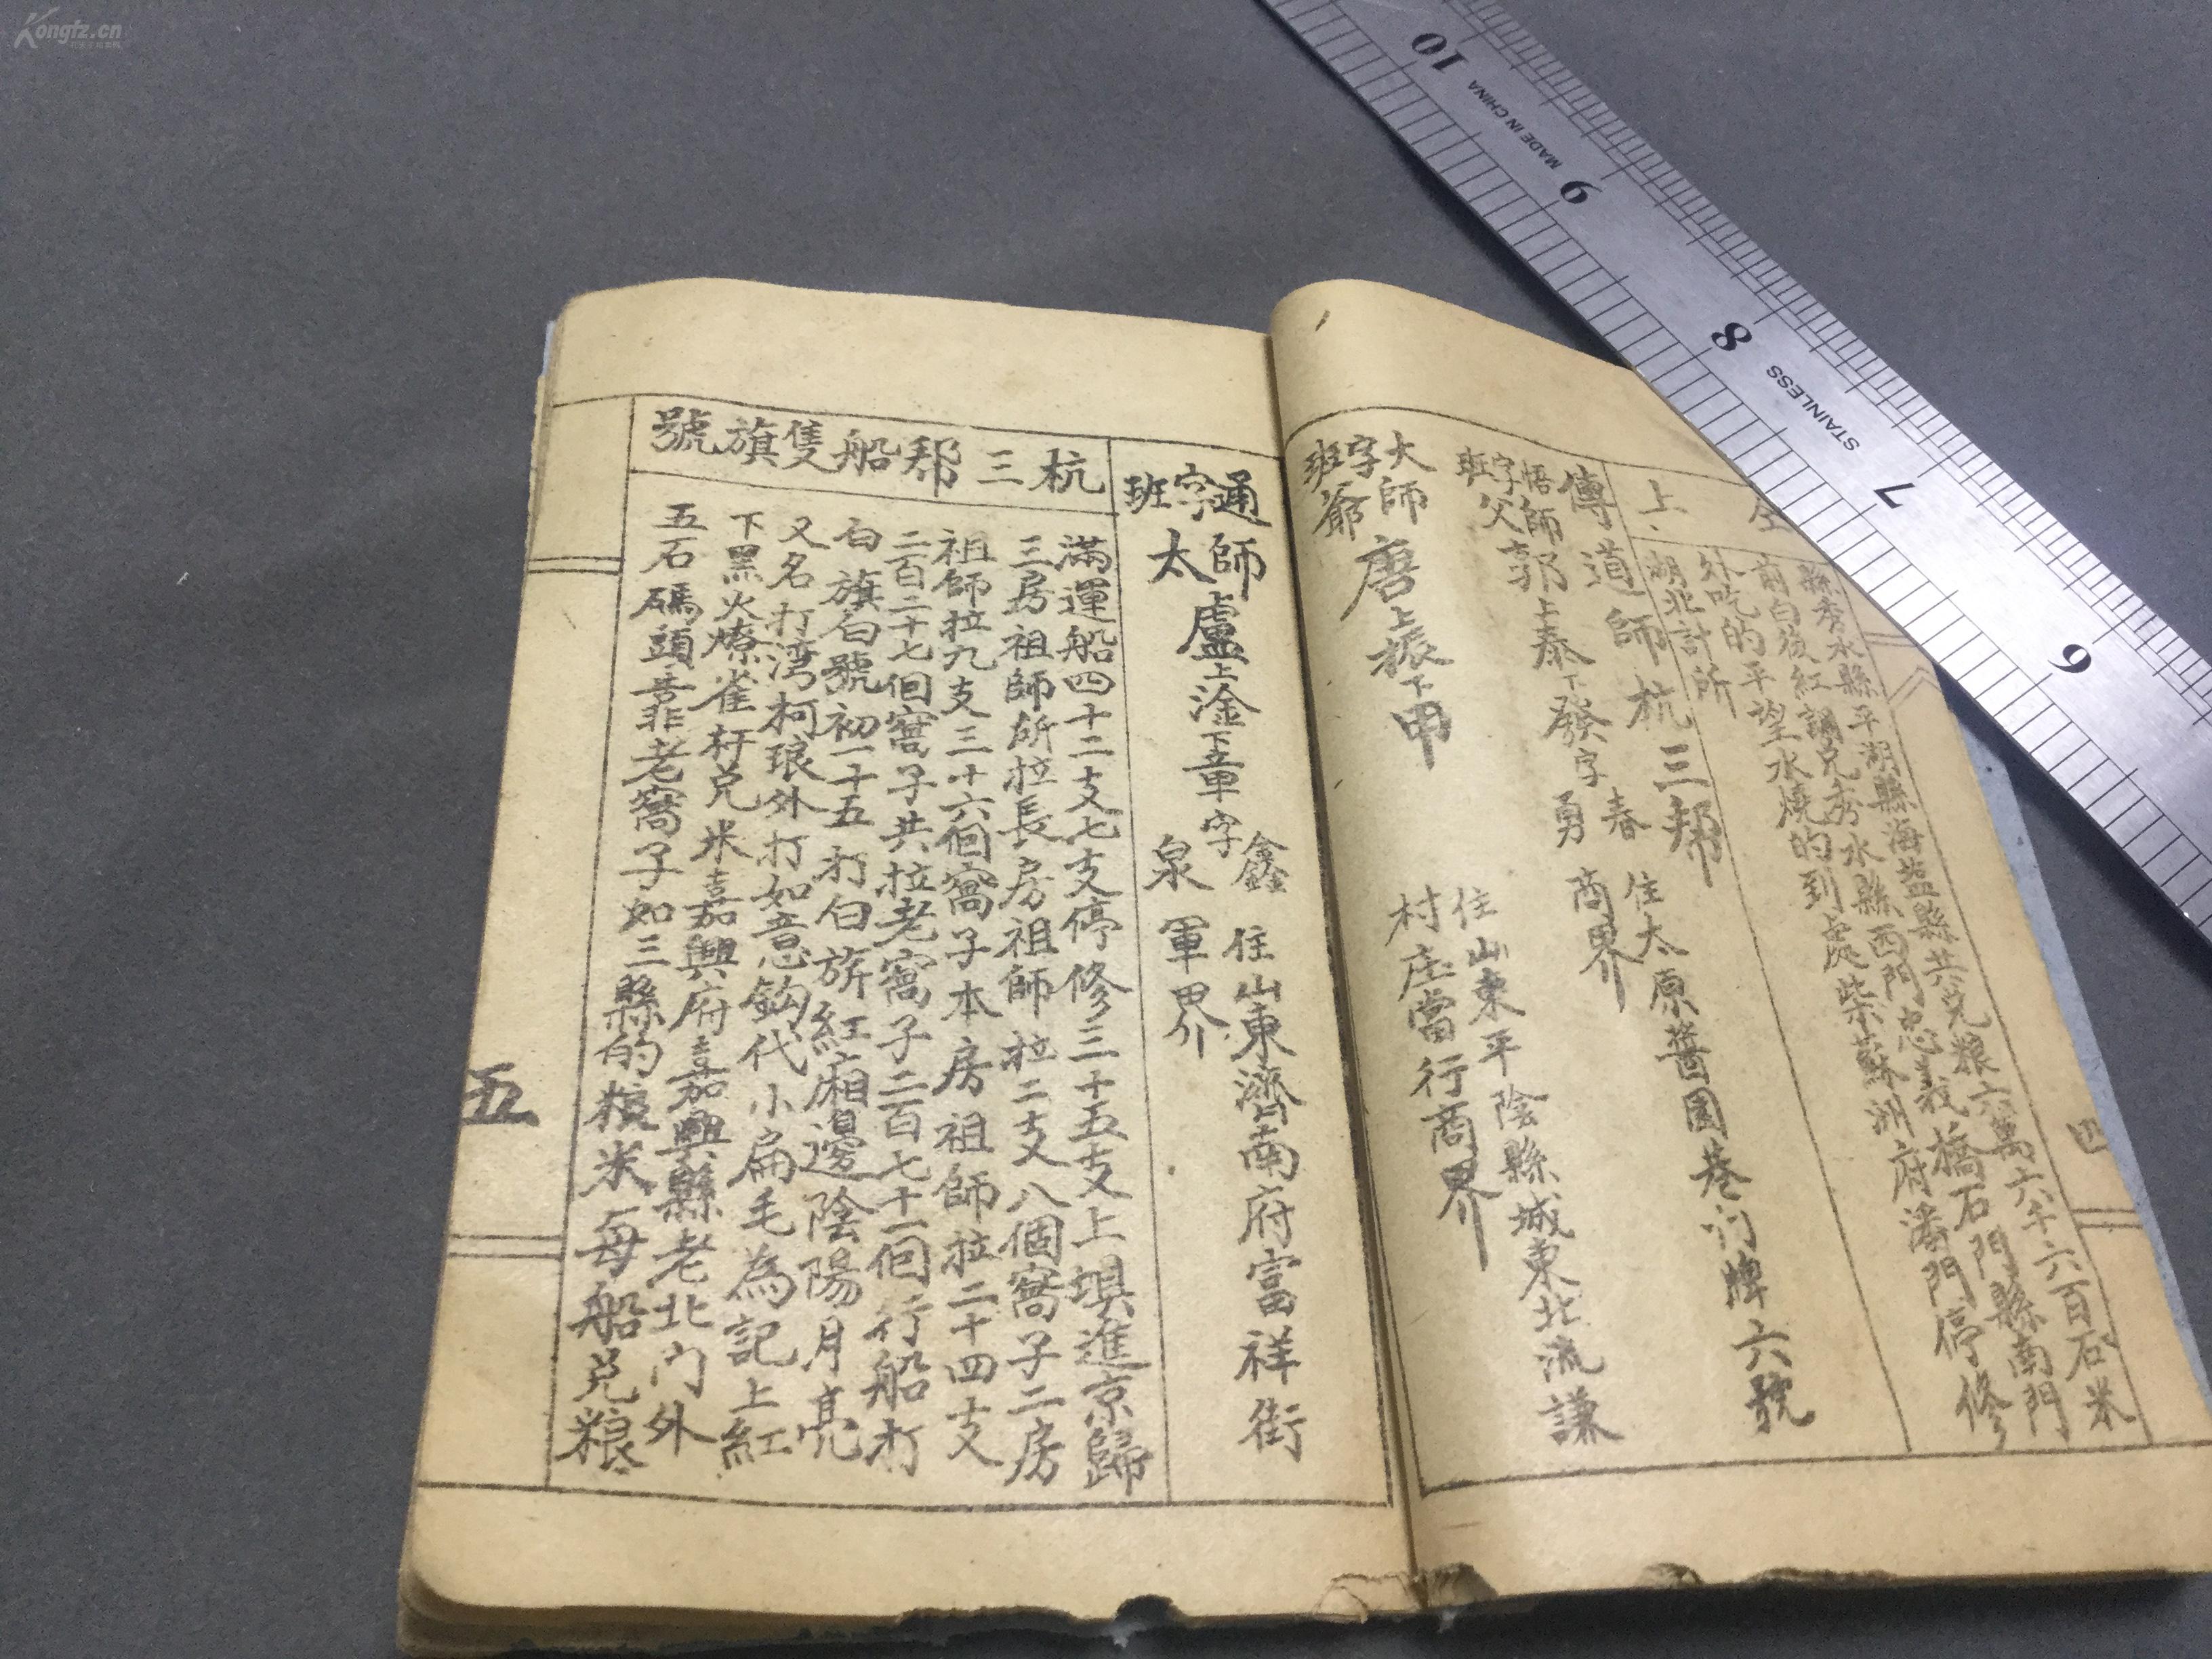 Kongfz.cn
10
MADE IN CHINA
9
8
STAINLESS
7
6
四
縣秀水縣平湖縣海盐縣共兑粮六萬六千六百石米
前白後紅 兑秀水縣西門忠義橋石門縣南門
外吃的平望水燒的到處柴蘇洲府 門停修
湖北計所
上
傳道師杭三帮
住太原醬園巷们牌六號
悟字班
師父郭上泰下發字春勇
商界
大字班
師爺唐上振下甲
住山東平陰縣城東北流謙
村庄當行商界
通字班
師太盧上淦下章字鑫泉
住山東濟南府富祥街
軍界
杭三帮船隻旗號
滿運船四十二支七支停修三十五支上埧進京歸
三房祖師所拉長房祖師拉二支八個窩子二房
祖師拉九支三十六個窩子本房祖師拉二十四支
二百二十七個窩子共拉老窩子二百七十一個行船打
白旗白號初一十五打白旂紅廂邊陰陽月亮
又名打湾柯琅外打如意鈎代小扁毛為記上紅
下黑火燎雀杆兑米嘉興府嘉興縣老北门外
五石碼頭靠老窩子如三縣的粮米每船兑粮
五